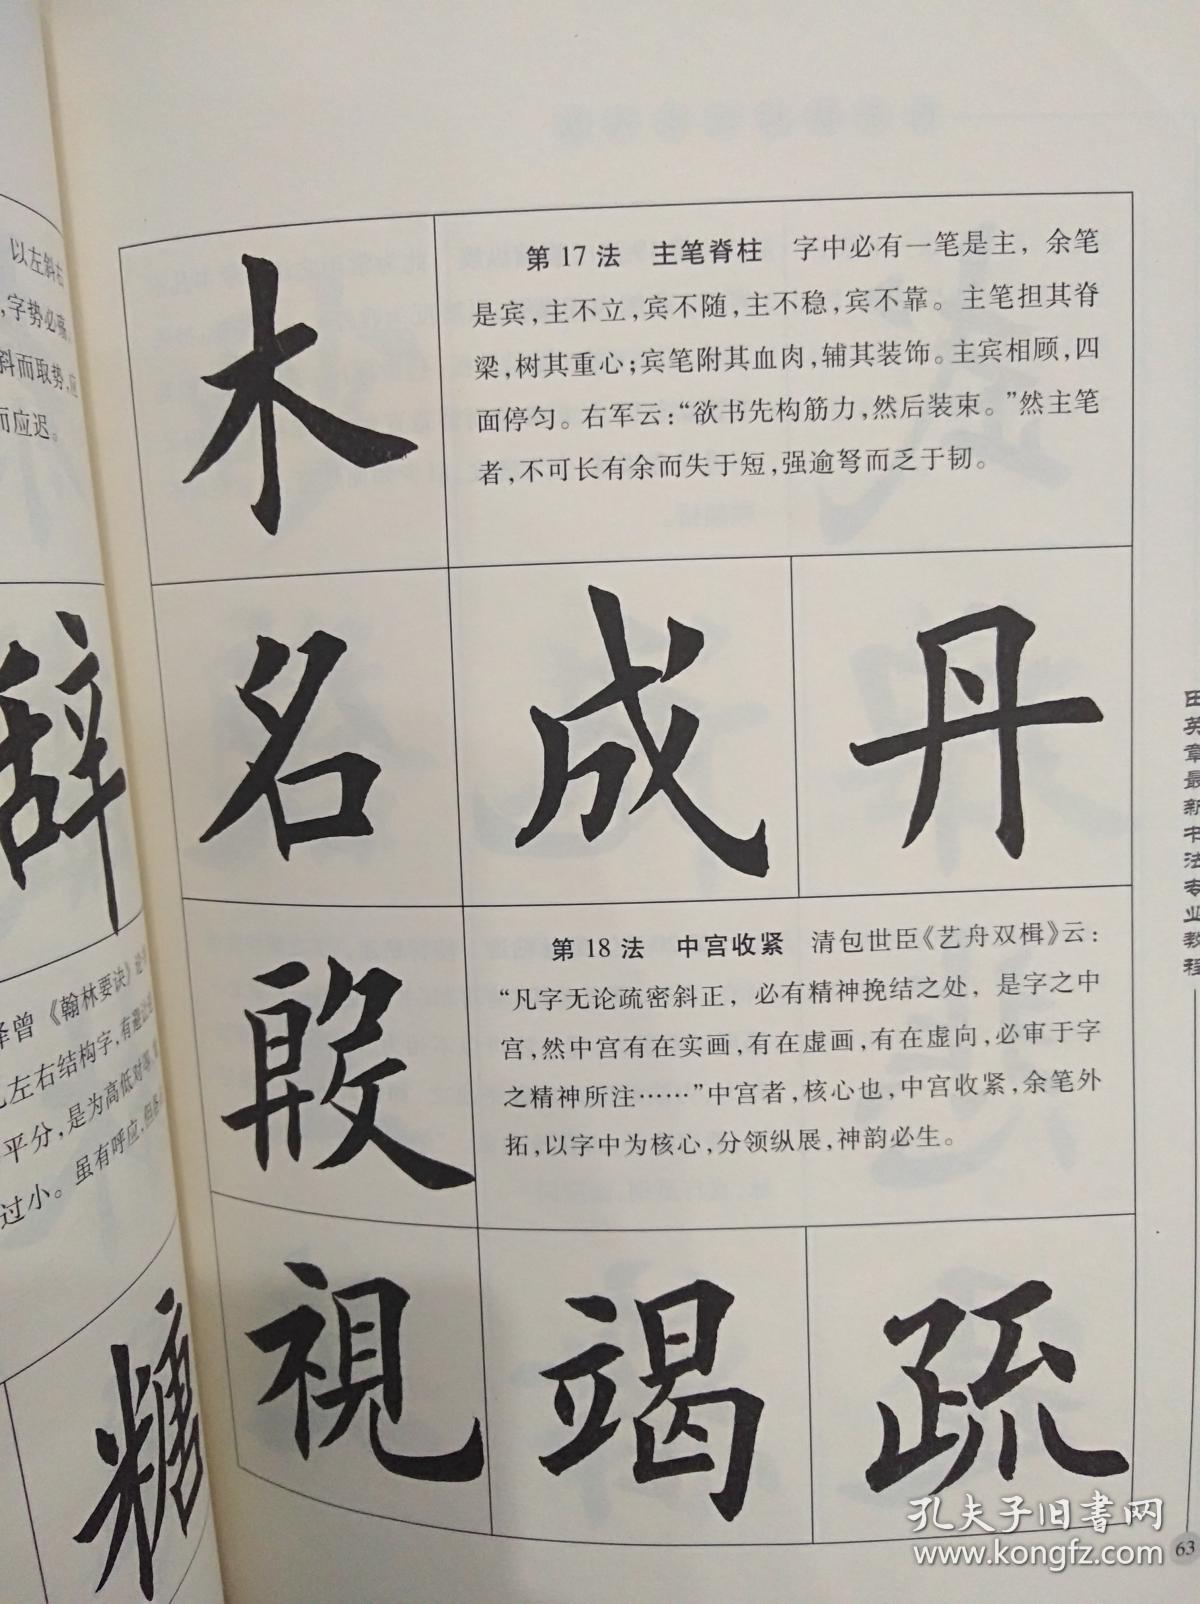 以左斜右
字势必
斜而取势,应
而应迟。
辞
择曾《翰林要诀》论
左右结构字,有避让
平分,是为高低对等。
过小。虽有呼应,但
糖
木
第17法　主笔脊柱　字中必有一笔是主，余笔
是宾，主不立，宾不随，主不稳，宾不靠。主笔担其脊
梁，树其重心；宾笔附其血肉，辅其装饰。主宾相顾，四
面停匀。右军云：“欲书先构筋力，然后装束。”然主笔
者，不可长有余而失于短，强逾弩而乏于韧。
名 成 丹
殷
第18法　中宫收紧　清包世臣《艺舟双楫》云：
“凡字无论疏密斜正，必有精神挽结之处，是字之中
宫，然中宫有在实画，有在虚画，有在虚向，必审于字
之精神所注……”中宫者，核心也，中宫收紧，余笔外
拓，以字中为核心，分领纵展，神韵必生。
視 竭 疏
田英章最新书法专业教程
63
孔夫子旧书网
www.kongfz.com